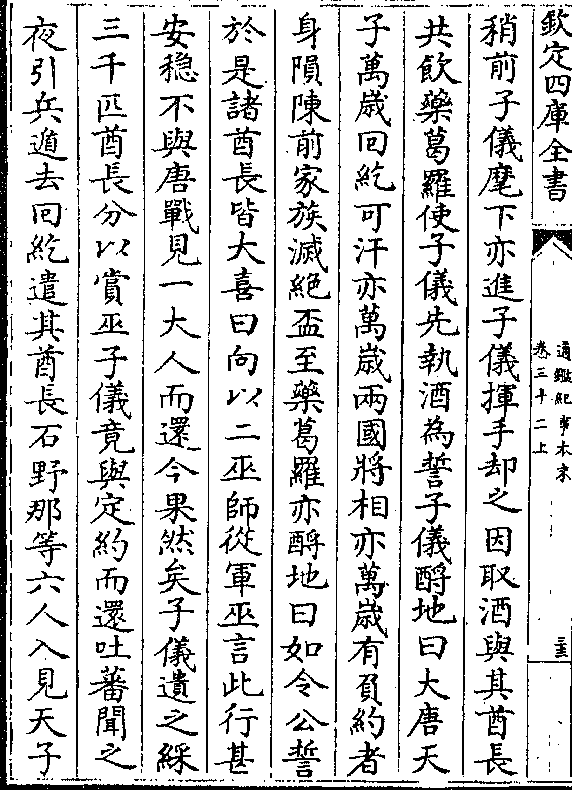 欽定四庫全書
通鑑紀事本末
卷三十二上
三
稍前子儀麾下亦進子儀揮手却之因取酒與其酋長
共飲藥葛羅使子儀先執酒為誓子儀酹地曰大唐天
子萬歲回紇可汗亦萬歲兩國將相亦萬歲有負約者
身隕陳前家族滅絕盃至藥葛羅亦酹地曰如令公誓
於是諸酋長皆大喜曰向以二巫師從軍巫言此行甚
安穏不與唐戰見一大人而還今果然矣子儀遺之綵
三千匹酋長分以賞巫子儀竟與定約而還吐蕃聞之
夜引兵遁去回紇遣其酋長石野那等六人入見天子